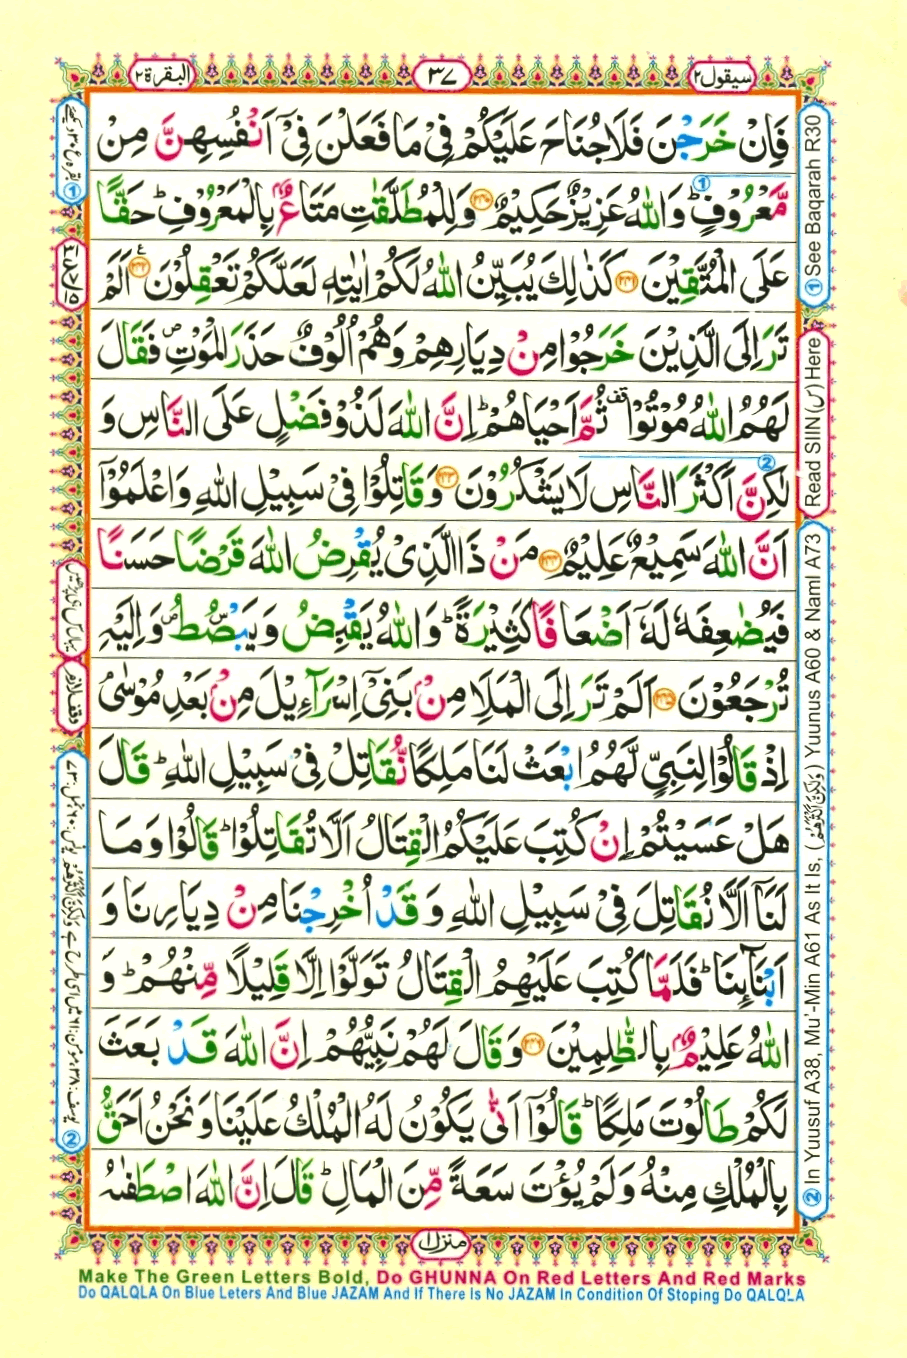 سيقول ٢
٣٧
البقرة ٢
فَاِنْ خَرَجْنَ فَلَا جُنَاحَ عَلَيْكُمْ فِيْ مَا فَعَلْنَ فِيْۤ اَنْفُسِهِنَّ مِنْ
مَّعْرُوْفٍ ؕ وَاللّٰهُ عَزِيْزٌ حَكِيْمٌ ﴿۲۴۰﴾ وَلِلْمُطَلَّقٰتِ مَتَاعٌۢ بِالْمَعْرُوْفِ ؕ حَقًّا
عَلَى الْمُتَّقِيْنَ ﴿۲۴۱﴾ كَذٰلِكَ يُبَيِّنُ اللّٰهُ لَكُمْ اٰيٰتِهٖ لَعَلَّكُمْ تَعْقِلُوْنَ ﴿۲۴۲﴾ اَلَمْ
تَرَ اِلَى الَّذِيْنَ خَرَجُوْا مِنْ دِيَارِهِمْ وَهُمْ اُلُوْفٌ حَذَرَ الْمَوْتِ ۪ فَقَالَ
لَهُمُ اللّٰهُ مُوْتُوْا ۟ ثُمَّ اَحْيَاهُمْ ؕ اِنَّ اللّٰهَ لَذُوْ فَضْلٍ عَلَى النَّاسِ وَ
لٰكِنَّ اَكْثَرَ النَّاسِ لَا يَشْكُرُوْنَ ﴿۲۴۳﴾ وَقَاتِلُوْا فِيْ سَبِيْلِ اللّٰهِ وَاعْلَمُوْۤا
اَنَّ اللّٰهَ سَمِيْعٌ عَلِيْمٌ ﴿۲۴۴﴾ مَنْ ذَا الَّذِيْ يُقْرِضُ اللّٰهَ قَرْضًا حَسَنًا
فَيُضٰعِفَهٗ لَهٗۤ اَضْعَافًا كَثِيْرَةً ؕ وَاللّٰهُ يَقْبِضُ وَيَبْصُۜطُ ۪ وَاِلَيْهِ
تُرْجَعُوْنَ ﴿۲۴۵﴾ اَلَمْ تَرَ اِلَى الْمَلَاِ مِنْۢ بَنِيْۤ اِسْرَآءِيْلَ مِنْۢ بَعْدِ مُوْسٰى
اِذْ قَالُوْا لِنَبِيٍّ لَّهُمُ ابْعَثْ لَنَا مَلِكًا نُّقَاتِلْ فِيْ سَبِيْلِ اللّٰهِ ؕ قَالَ
هَلْ عَسَيْتُمْ اِنْ كُتِبَ عَلَيْكُمُ الْقِتَالُ اَلَّا تُقَاتِلُوْا ؕ قَالُوْا وَمَا
لَنَاۤ اَلَّا نُقَاتِلَ فِيْ سَبِيْلِ اللّٰهِ وَ قَدْ اُخْرِجْنَا مِنْ دِيَارِنَا وَ
اَبْنَآئِنَا ؕ فَلَمَّا كُتِبَ عَلَيْهِمُ الْقِتَالُ تَوَلَّوْا اِلَّا قَلِيْلًا مِّنْهُمْ ؕ وَ
اللّٰهُ عَلِيْمٌۢ بِالظّٰلِمِيْنَ ﴿۲۴۶﴾ وَقَالَ لَهُمْ نَبِيُّهُمْ اِنَّ اللّٰهَ قَدْ بَعَثَ
لَكُمْ طَالُوْتَ مَلِكًا ؕ قَالُوْۤا اَنّٰى يَكُوْنُ لَهُ الْمُلْكُ عَلَيْنَا وَنَحْنُ اَحَقُّ
بِالْمُلْكِ مِنْهُ وَلَمْ يُؤْتَ سَعَةً مِّنَ الْمَالِ ؕ قَالَ اِنَّ اللّٰهَ اصْطَفٰىهُ
① See Baqarah R30
Read SIIN (س) Here
② In Yuusuf A38, Mu'-Min A61 As It Is, (وَلٰكِنَّ اَكْثَرَهُمْ) Yuunus A60 & Naml A73
منزل ١
Make The Green Letters Bold, Do GHUNNA On Red Letters And Red Marks
Do QALQLA On Blue Leters And Blue JAZAM And If There Is No JAZAM In Condition Of Stoping Do QALQLA